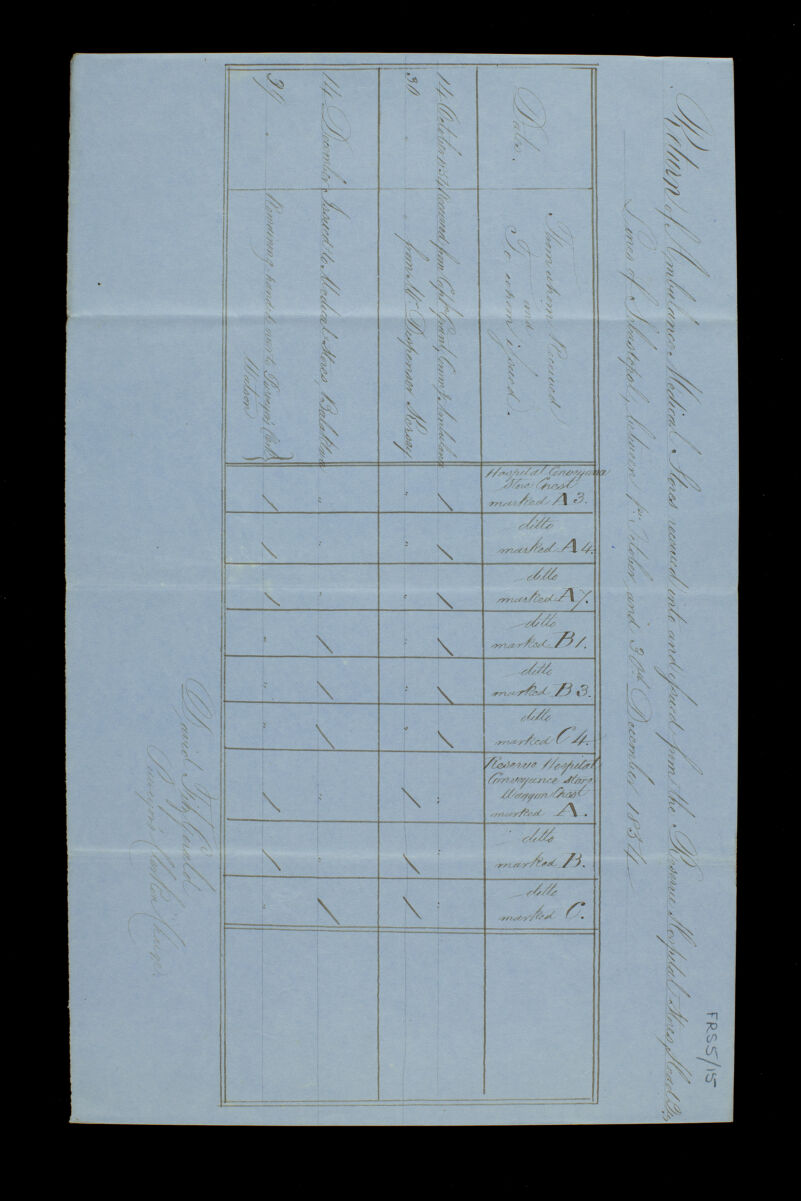 FRS5/15
Return of Ambulance Medical Stores received into and issued from the Reserve Hospital Stores, Head Qrs
Lines of Sebastopol, between 1st October and 30th December 1854
Date.
From whom Received
and
To whom issued.
Hospital Conveyance
Store Chest
marked A 3.
ditto
marked A 4.
ditto
marked A 7.
ditto
marked B 1.
ditto
marked B 3.
ditto
marked C 4.
Reserve Hospital
Conveyance Store
Waggon Chest
marked A.
ditto
marked B.
ditto
marked C.
14 October Received from Captn Grant, Ambulance 1 1 1 1 1 1 " " "
30 " from Mr Dispenser " " " " " " 1 1 1
14 December Issued to Medical Stores, Balaklava " " " 1 1 1 " " 1
31 " Remaining handed over to Purveyor's Clerk 1 1 1 " " " 1 1 "
Watson
David Fitz Gerald
Purveyor's Clerk in Charge